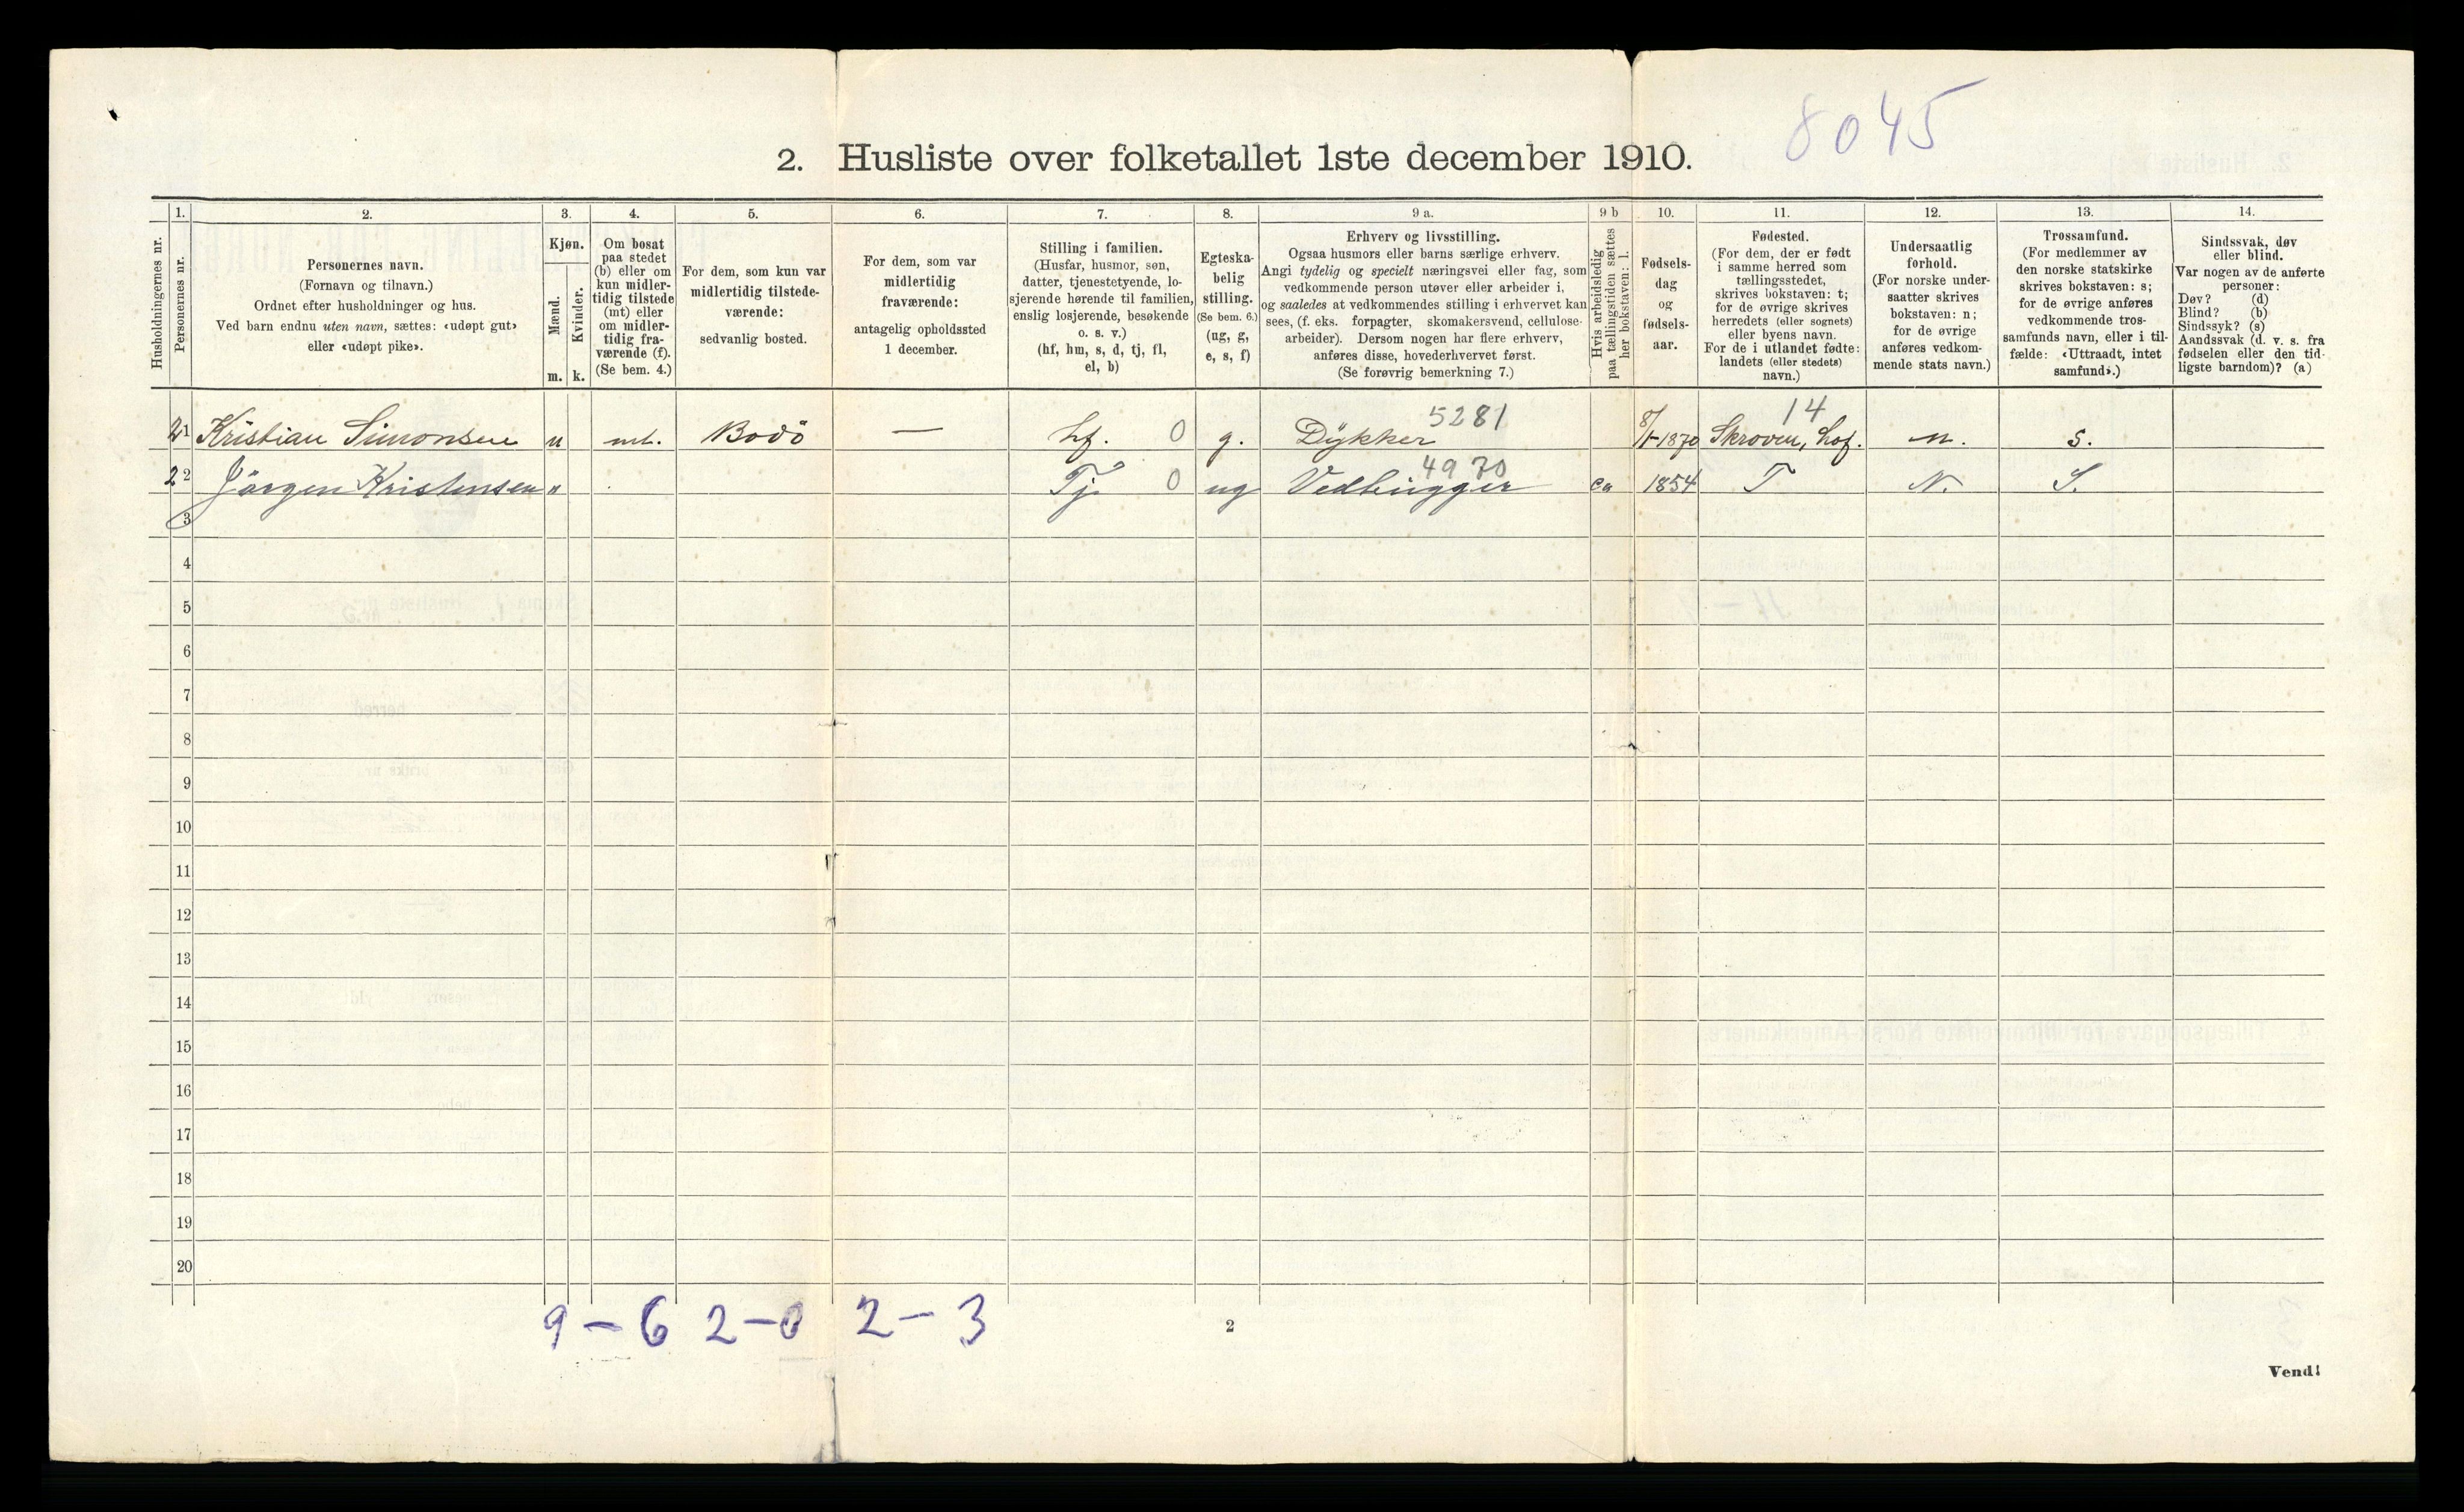 8045
2. Husliste over folketallet 1ste december 1910.
Husholdningernes nr.
1.
Personernes nr.
2.
Personernes navn.
(Fornavn og tilnavn.)
Ordnet efter husholdninger og hus.
Ved barn endnu uten navn, sættes: «udøpt gut»
eller «udøpt pike».
3.
Kjøn.
Mænd.
Kvinder.
m. k.
4.
Om bosat
paa stedet
(b) eller om
kun midler-
tidig tilstede
(mt) eller
om midler-
tidig fra-
værende (f).
(Se bem. 4.)
5.
For dem, som kun var
midlertidig tilstede-
værende:
sedvanlig bosted.
6.
For dem, som var
midlertidig
fraværende:
antagelig opholdssted
1 december.
7.
Stilling i familien.
(Husfar, husmor, søn,
datter, tjenestetyende, lo-
sjerende hørende til familien,
enslig losjerende, besøkende
o. s. v.)
(hf, hm, s, d, tj, fl,
el, b)
8.
Egteska-
belig
stilling.
(Se bem. 6.)
(ug, g,
e, s, f)
9 a.
Erhverv og livsstilling.
Ogsaa husmors eller barns særlige erhverv.
Angi tydelig og specielt næringsvei eller fag, som
vedkommende person utøver eller arbeider i,
og saaledes at vedkommendes stilling i erhvervet kan
sees, (f. eks. forpagter, skomakersvend, cellulose-
arbeider). Dersom nogen har flere erhverv,
anføres disse, hovederhvervet først.
(Se forøvrig bemerkning 7.)
9 b
Hvis arbeidsledig
paa tællingstiden sættes
her bokstaven: l.
10.
Fødsels-
dag
og
fødsels-
aar.
11.
Fødested.
(For dem, der er født
i samme herred som
tællingsstedet,
skrives bokstaven: t;
for de øvrige skrives
herredets (eller sognets)
eller byens navn.
For de i utlandet fødte:
landets (eller stedets)
navn.)
12.
Undersaatlig
forhold.
(For norske under-
saatter skrives
bokstaven: n;
for de øvrige
anføres vedkom-
mende stats navn.)
13.
Trossamfund.
(For medlemmer av
den norske statskirke
skrives bokstaven: s;
for de øvrige anføres
vedkommende tros-
samfunds navn, eller i til-
fælde: «Uttraadt, intet
samfund».)
14.
Sindssvak, døv
eller blind.
Var nogen av de anførte
personer:
Døv? (d)
Blind? (b)
Sindssyk? (s)
Aandssvak (d. v. s. fra
fødselen eller den tid-
ligste barndom)? (a)
5281 14
21 Kristian Simonsen mt. Bodö — hf. 0 g. Dykker 8/1-1870 Skroven, Lof. n. s.
4970
22 Jörgen Kristensen " Tj 0 ug Vedhugger ca 1854 T N. S.
3
4
5
6
7
8
9
10
11
12
13
14
15
16
17
18
19
20
9 – 6 2 – 0 2 – 3
2
Vend!